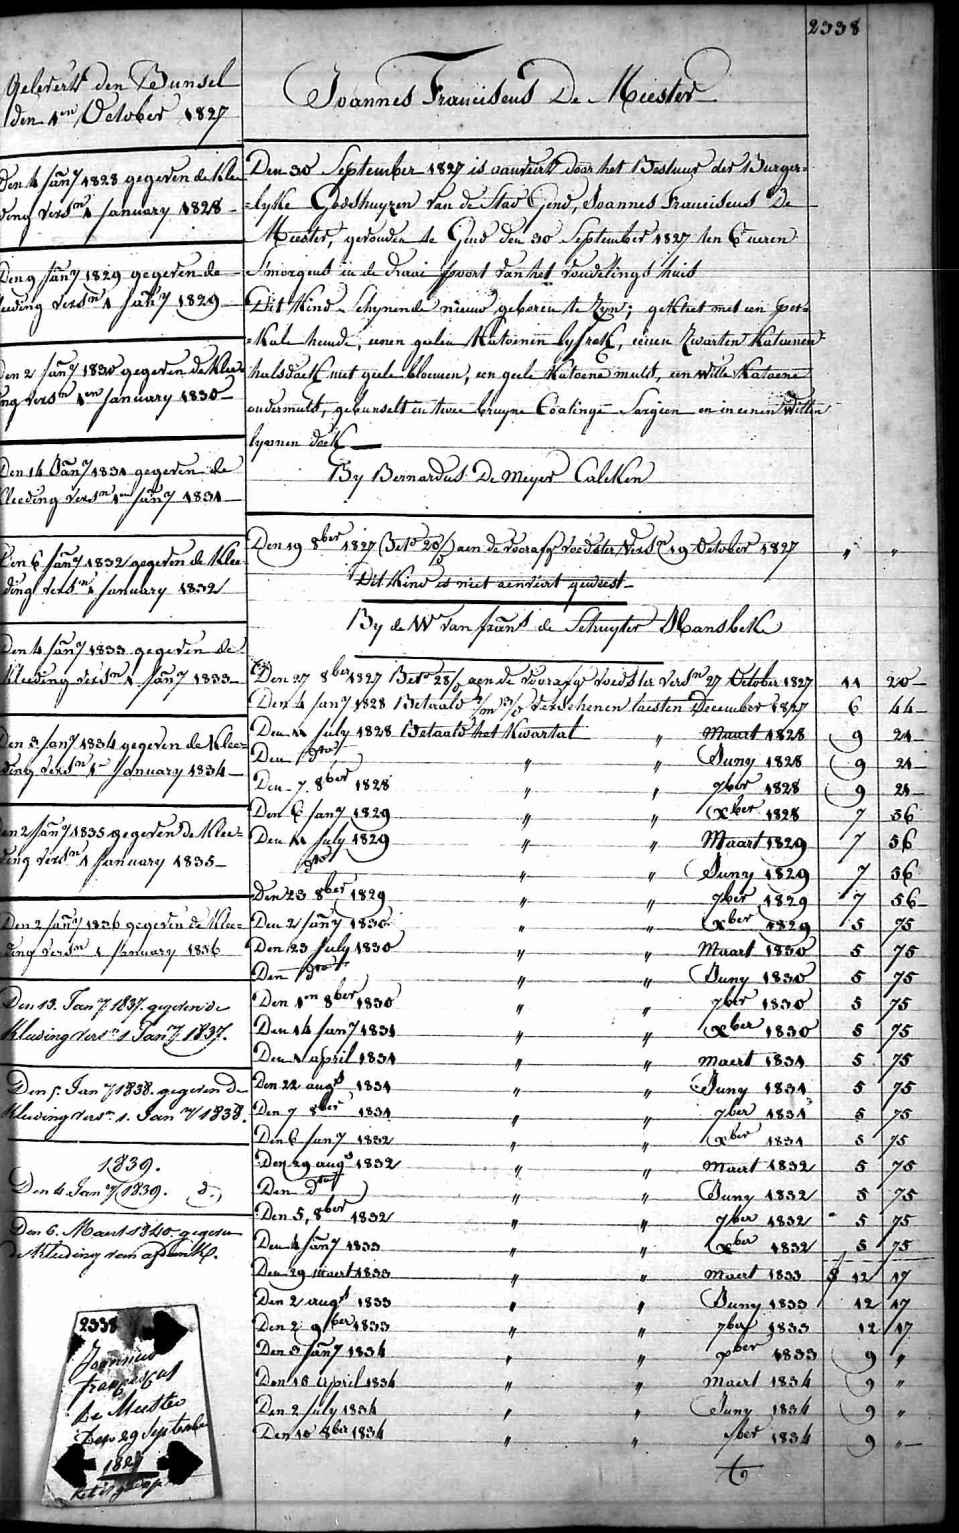 2338
Geleverd den Bunsel
den 1en October 1827
Den 4 Jany 1828 gegeven de klee
ding versn 1 January 1828
Den 9 Jany 1829 gegeven de
kleeding versn 1 Jany 1829
Den 2 Jany 1830 gegeven de klee
ding versn 1en January 1830
Den 14 Jany 1831 gegeven de
kleeding versn 1en Jany 1831
Den 6 Jany 1832 gegeven de klee
ding versn 1 January 1832
Den 4 Jany 1833 gegeven de
kleeding versn 1 Jany 1833
Den 3 Jany 1834 gegeven de klee=
ding versn 1en January 1834
Den 2 Jany 1835 gegeven de klee=
ding versn 1 January 1835
Den 2 Jany 1836 gegeven de klee=
ding versn 1 January 1836
Den 13. Jany 1837. gegeven de
kleeding versn 1 Jany 1837.
Den 5. Jany 1838. gegeven de
kleeding versn 1. Jany 1838.
1839.
Den 4 Jany 1839. do
Den 6. Maert 1840. gegeven
de kleeding
2338
Joannes
franciscus
de Meester
Den 29 September
1827
Joannes Franciscus De Meester
Den 30 September 1827 is aanveerd door het Bestuur der Burger=
=lyke Godshuyzen van de Stad Gend, Joannes Franciscus De
Meester, gevonden te Gend den 30 September 1827 ten 6 ueren
s'morgens in de draai poort van het vondelings huis
Dit Kind schynende nieuw geboren te zyn; gekleet met een per=
=kale hemde, eenen geelen Katoenen lyfrok, eenen zwarten Katoenen
halsdoek met geele bloemen, een geele Katoene muts, een witte Katoene
ondermuts, gebunselt in twee bruyne Coatinge Sargien en in eenen witten
lynnen doek
By Bernardus De Meyer Calcken
Den 19 8ber 1827 Beto 20/ aen de voorafge voedster versn 19 October 1827 " "
Dit Kind is niet aenveert geweest
By de We van frans de Schuyter Hansbeke
Den 27 8ber 1827 Beto 28/ aen de voorafge voedster versn 27 October 1827 11 20
Den 4 Jany 1828 Betaald verschenen laesten December 1827 6 44
Den 11 July 1828 Betaald het Kwartal " Maart 1828 9 21
Den dto " " Juny 1828 9 21
Den 7 8ber 1828 " " 7ber 1828 9 21
Den 6 Jany 1829 " " Xber 1828 7 56
Den 11 July 1829 " " Maart 1829 7 56
dto " " Juny 1829 7 56
Den 23 8ber 1829 " " 7ber 1829 7 56
Den 2 Jany 1830 " " Xber 1829 5 75
Den 23 July 1830 " " Maart 1830 5 75
Den dto " " Juny 1830 5 75
Den 1en 8ber 1830 " " 7ber 1830 5 75
Den 14 Jany 1831 " " Xber 1830 5 75
Den 1 april 1831 " " maert 1831 5 75
Den 22 augt 1831 " " Juny 1831 5 75
Den 7 8ber 1831 " " 7ber 1831 5 75
Den 6 Jany 1832 " " Xber 1831 5 75
Den 29 augt 1832 " " maert 1832 5 75
Den dto " " Juny 1832 5 75
Den 5, 8ber 1832 " " 7ber 1832 5 75
Den 4 Jany 1833 " " Xber 1832 5 75
Den 29 maert 1833 " " maert 1833 12 17
Den 2 augt 1833 " " Juny 1833 12 17
Den 2 9ber 1833 " " 7ber 1833 12 17
Den 3 Jany 1834 " " Xber 1833 9 "
Den 18 april 1834 " " maert 1834 9 "
Den 2 July 1834 " " Juny 1834 9 "
Den 10 8ber 1834 " " 7ber 1834 9 "